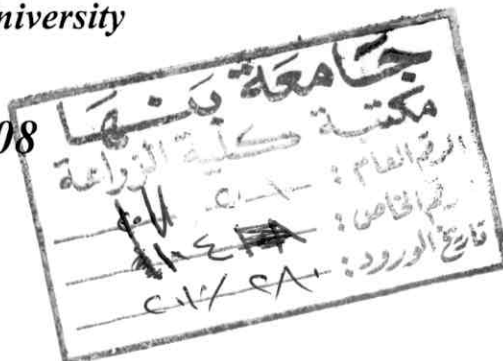 niversity
08
جامعة بنها
مكتبة كلية الزراعة
الرقم العام :
رقم الخاص :
تاريخ الورود :